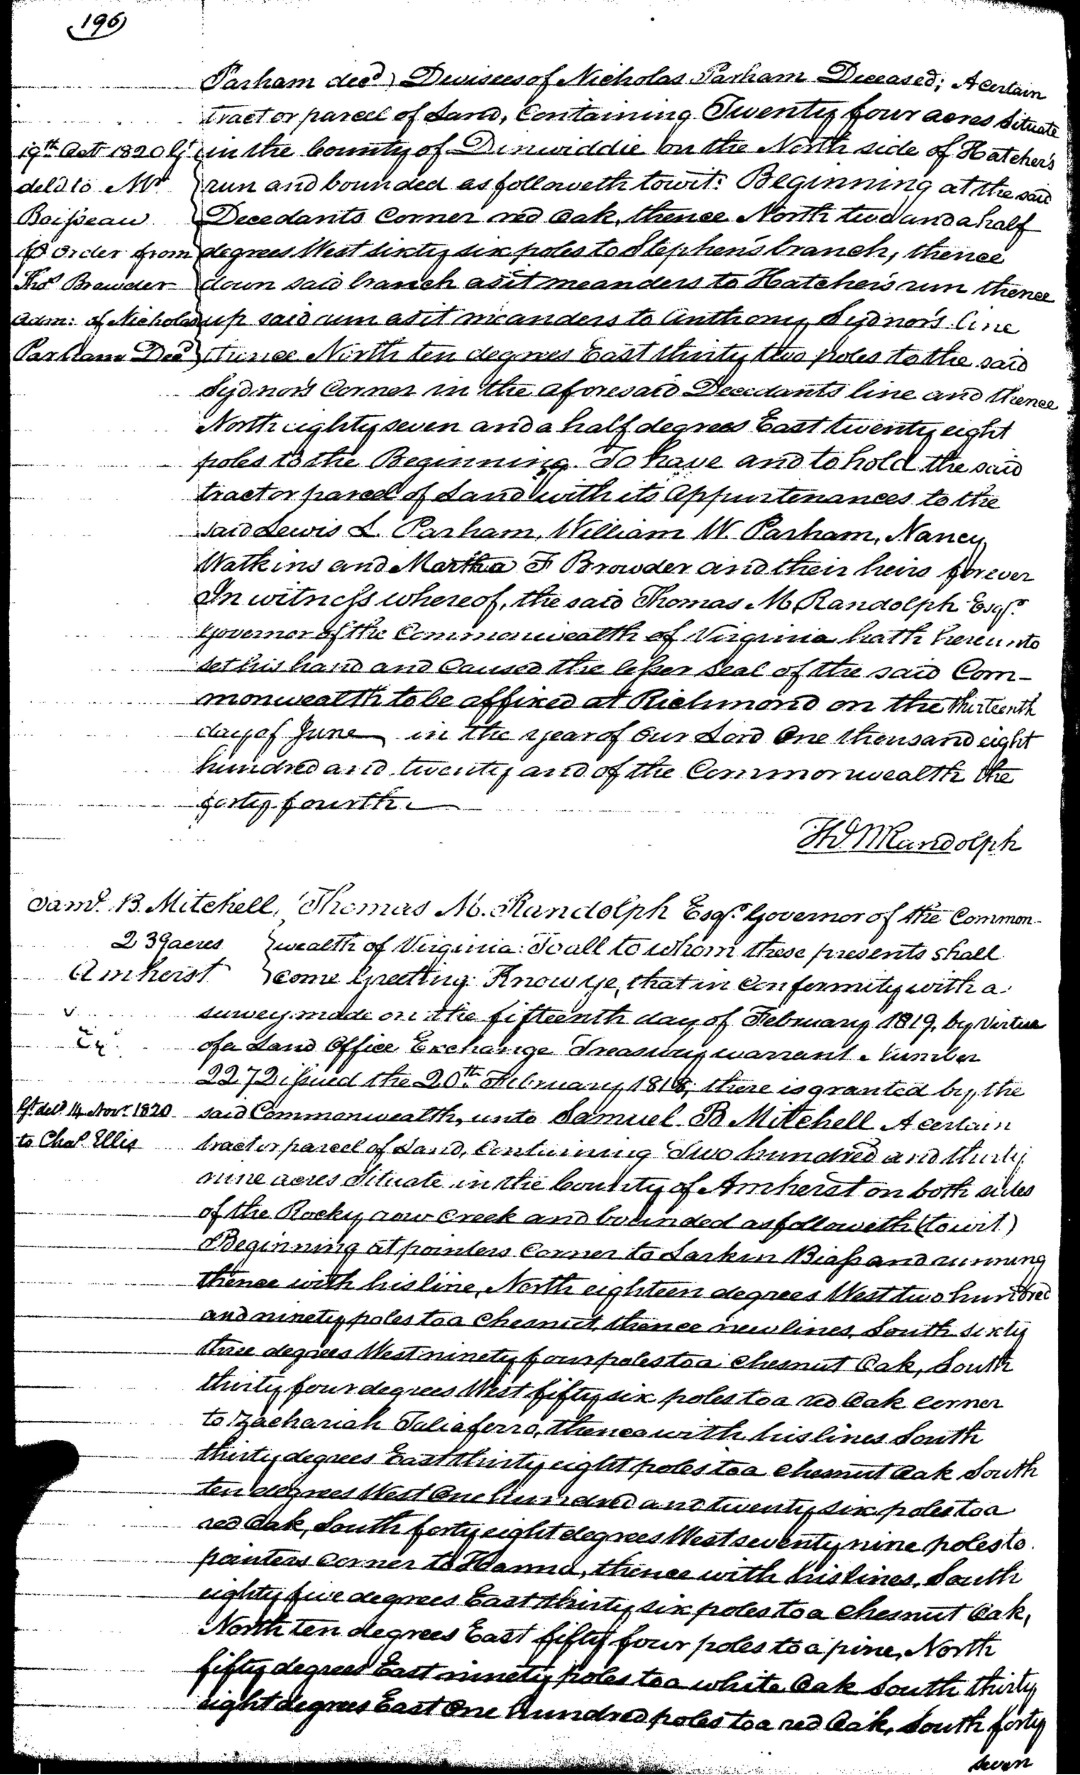 196
Parham dec.d) Devisees of Nicholas Parham Deceased; A certain
tract or parcel of Land, Containing Twenty four acres Situate
in the County of Dinwiddie on the North side of Hatcher's
run and bounded as followeth towit: Beginning at the said
Decedants Corner red Oak, thence North two and a half
degrees West sixty six poles to Stephen's branch, thence
down said branch as it meanders to Hatcher's run thence
up said run as it meanders to Anthony Sydnor's line
thence North ten degrees East thirty two poles to the said
Sydnor's Corner in the aforesaid Decedants line and thence
North eighty seven and a half degrees East twenty eight
poles to the Beginning. To have and to hold the said
tract or parcel of Land with its Appurtenances to the
said Lewis L. Parham, William W. Parham, Nancy
Watkins and Martha F Browder and their heirs forever
In witness whereof, the said Thomas M. Randolph Esq.r
Governor of the Commonwealth of Virginia hath hereunto
set his hand and Caused the lesser Seal of the said Com-
monwealth to be affixed at Richmond on the thirteenth
day of June in the year of our Lord One thousand eight
hundred and twenty and of the Commonwealth the
forty fourth.
19th Oct 1820 G.t
deld to Mr.
Boisseau
p Order from
Thos. Browder
Adm: of Nicholas
Parham Dec.d
Th M Randolph
Saml. B. Mitchell,
239 acres
Amherst
v
Ex
Gt. deld. 14 Novr. 1820
to Chas. Ellis
Thomas M. Randolph Esqr. Governor of the Common-
wealth of Virginia: To all to whom these presents shall
come Greeting: Know ye, that in Conformity with a
survey made on the fifteenth day of February 1819, by virtue
of a Land Office Exchange Treasury warrant Number
2272 issued the 20th February 1818, there is granted by the
said Commonwealth, unto Samuel B Mitchell A certain
tract or parcel of Land, Containing Two hundred and thirty
nine acres Situate in the County of Amherst on both sides
of the Rocky row Creek and bounded as followeth (towit)
Beginning at pointers Corner to Larkin Biass and running
thence with his line, North eighteen degrees West two hundred
and ninety poles to a Chesnut, thence new lines, South sixty
three degrees West ninety four poles to a Chesnut Oak, South
thirty four degrees West fifty six poles to a red Oak Corner
to Zachariah Taliaferro, thence with his lines South
thirty degrees East thirty eight poles to a Chesnut Oak South
ten degrees West One hundred and twenty six poles to a
red Oak, South forty eight degrees West seventy nine poles to
pointers Corner to Hanna, thence with his lines, South
eighty five degrees East thirty six poles to a Chesnut Oak,
North ten degrees East fifty four poles to a pine, North
fifty degrees East ninety poles to a white Oak South thirty
eight degrees East One hundred poles to a red Oak, South forty
seven